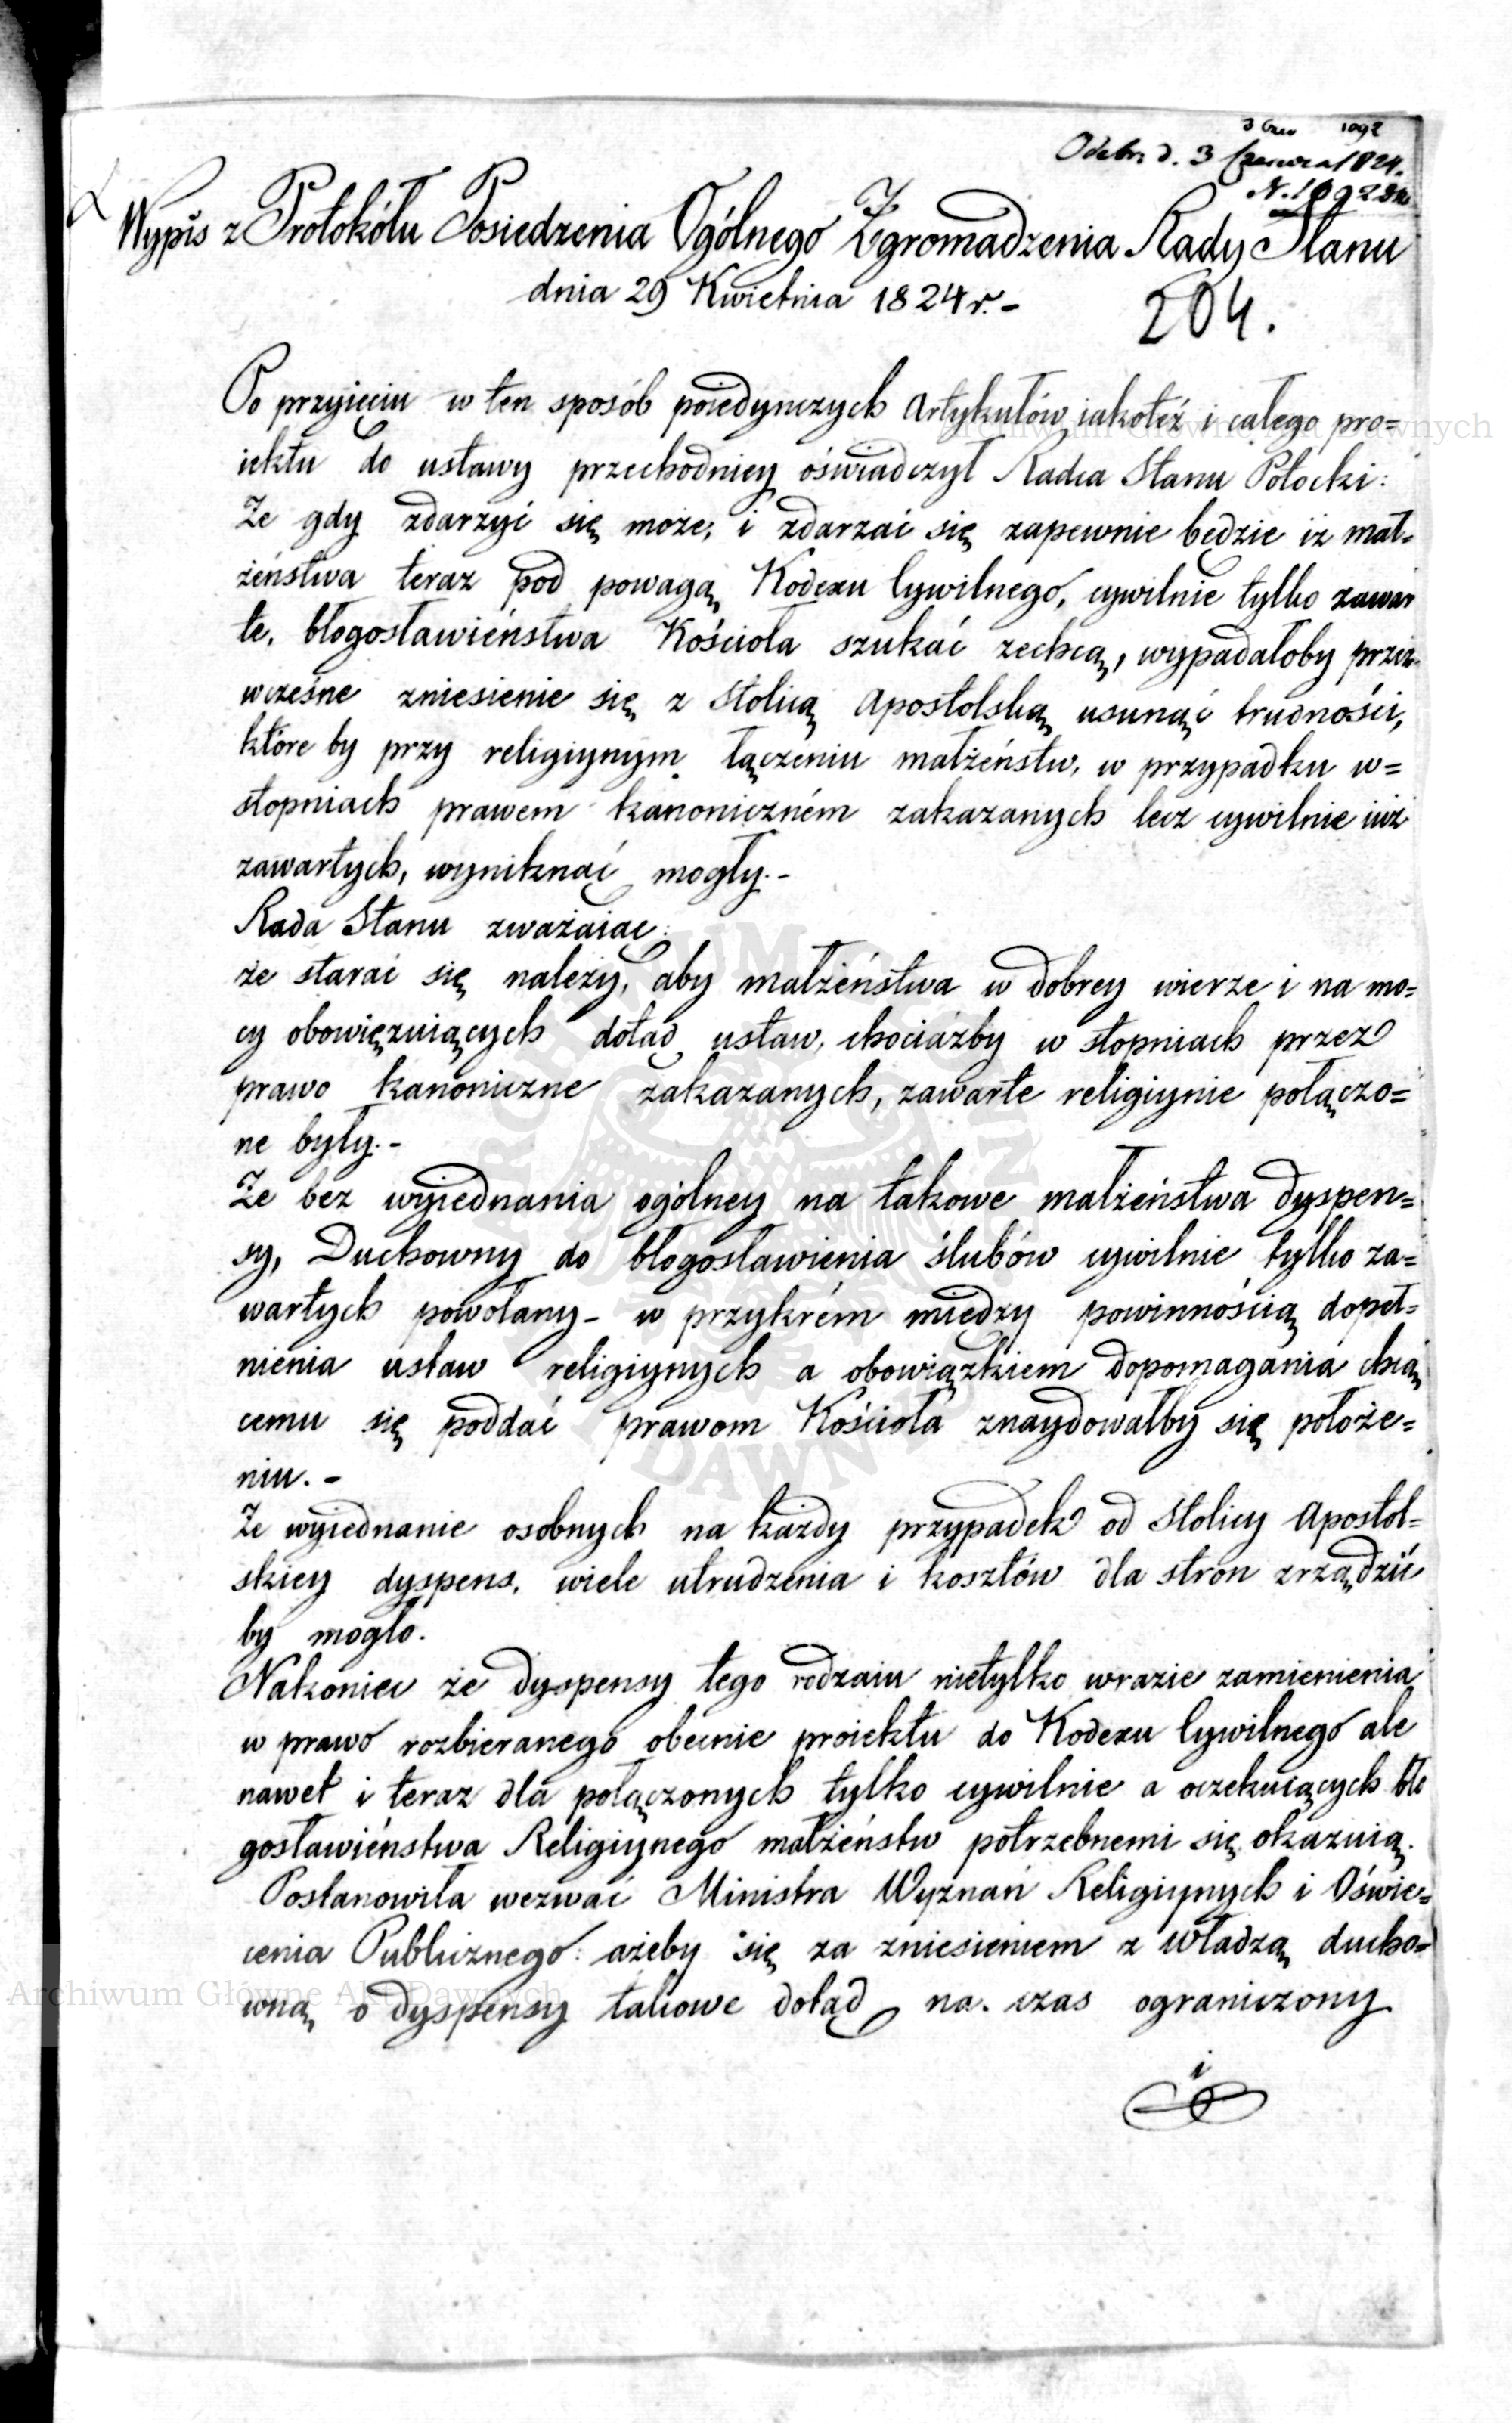 3 Czer 1092
Odebr. d. 3 Czerwca 1824.
N. 1092
Wypis z Protokółu Posiedzenia Ogólnego Zgromadzenia Rady Stanu
dnia 29 Kwietnia 1824 r.-
204.
Po przyięciu w ten sposób poiedynczych Artykułów iakoteż i całego pro=
iektu do ustawy przechodniey oświadczył Radca Stanu Potocki:
Że gdy zdarzyć się może, i zdarzać się zapewnie będzie iż mał=
żeństwa teraz pod powagą Kodexu Cywilnego, cywilnie tylko zawar
te, błogosławieństwa Kościoła szukać zechcą, wypadałoby przez
wcześne zniesienie się z Stolicą Apostolską usunąć trudności,
które by przy religiynym łączeniu małżeństw, w przypadku w=
stopniach prawem kanoniczném zakazanych lecz cywilnie iuż
zawartych, wyniknąć mogły.-
Rada Stanu zważaiąc:
że starać się należy, aby małżeństwa w dobrey wierze i na mo=
cy obowięzuiących dotąd ustaw, chociażby w stopniach przez
prawo kanoniczne zakazanych, zawarte religiynie połączo=
ne były.-
Że bez wyiednania ogólney na takowe małżeństwa dyspen=
sy, Duchowny do błogosławienia ślubów cywilnie tylko za=
wartych powołany- w przykrém między powinnością dopeł=
nienia ustaw religiynych a obowiązkiem dopomagania chcą
cemu się poddać prawom Kościoła znaydowałby się położe=
niu.-
Że wyiednanie osobnych na każdy przypadek od Stolicy Apostol=
skiey dyspens, wiele utrudzenia i kosztów dla stron zrządzić
by mogło.
Nakoniec że dyspensy tego rodzaiu nietylko wrazie zamienienia
w prawo rozbieranego obecnie proiektu do Kodexu Cywilnego ale
nawet i teraz dla połączonych tylko cywilnie a oczekuiących bło
gosławieństwa Religiynego małżeństw potrzebnemi się okazuią.
Postanowiła wezwać Ministra Wyznań Religiynych i Oświe=
cenia Publicznego: ażeby się za zniesieniem z władzą ducho=
wną o dyspensy takowe dotąd na czas ograniczony
i
Archiwum Główne Akt Dawnych